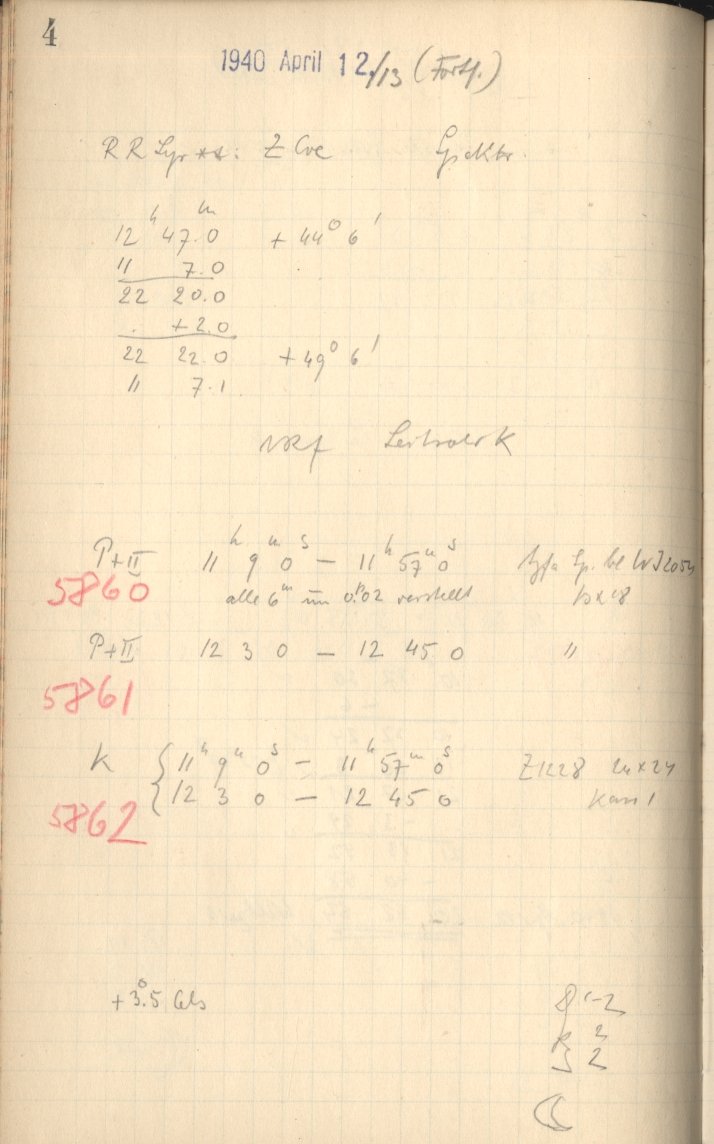 4
1940 April 12./13 (Forts.)
RR Lyr **: Z CVe Spektr.
12 h 47.0 m + 44° 6'
11 7.0
22 20.0
. + 2.0
22 22.0 + 49° 6'
11 7.1
Leitrohr K
P+II 11 h 9 m 0 s — 11 h 57 m 0 s Agfa Sp. bl
5860 alle 6 m um 0.02 verstellt
P+II 12 3 0 — 12 45 0 "
5861
K { 11 h 9 m 0 s — 11 h 57 m 0 s Z1228 24 x 24
{ 12 3 0 — 12 45 0 Kass 1
5862
+3.°5 Cels
2
2